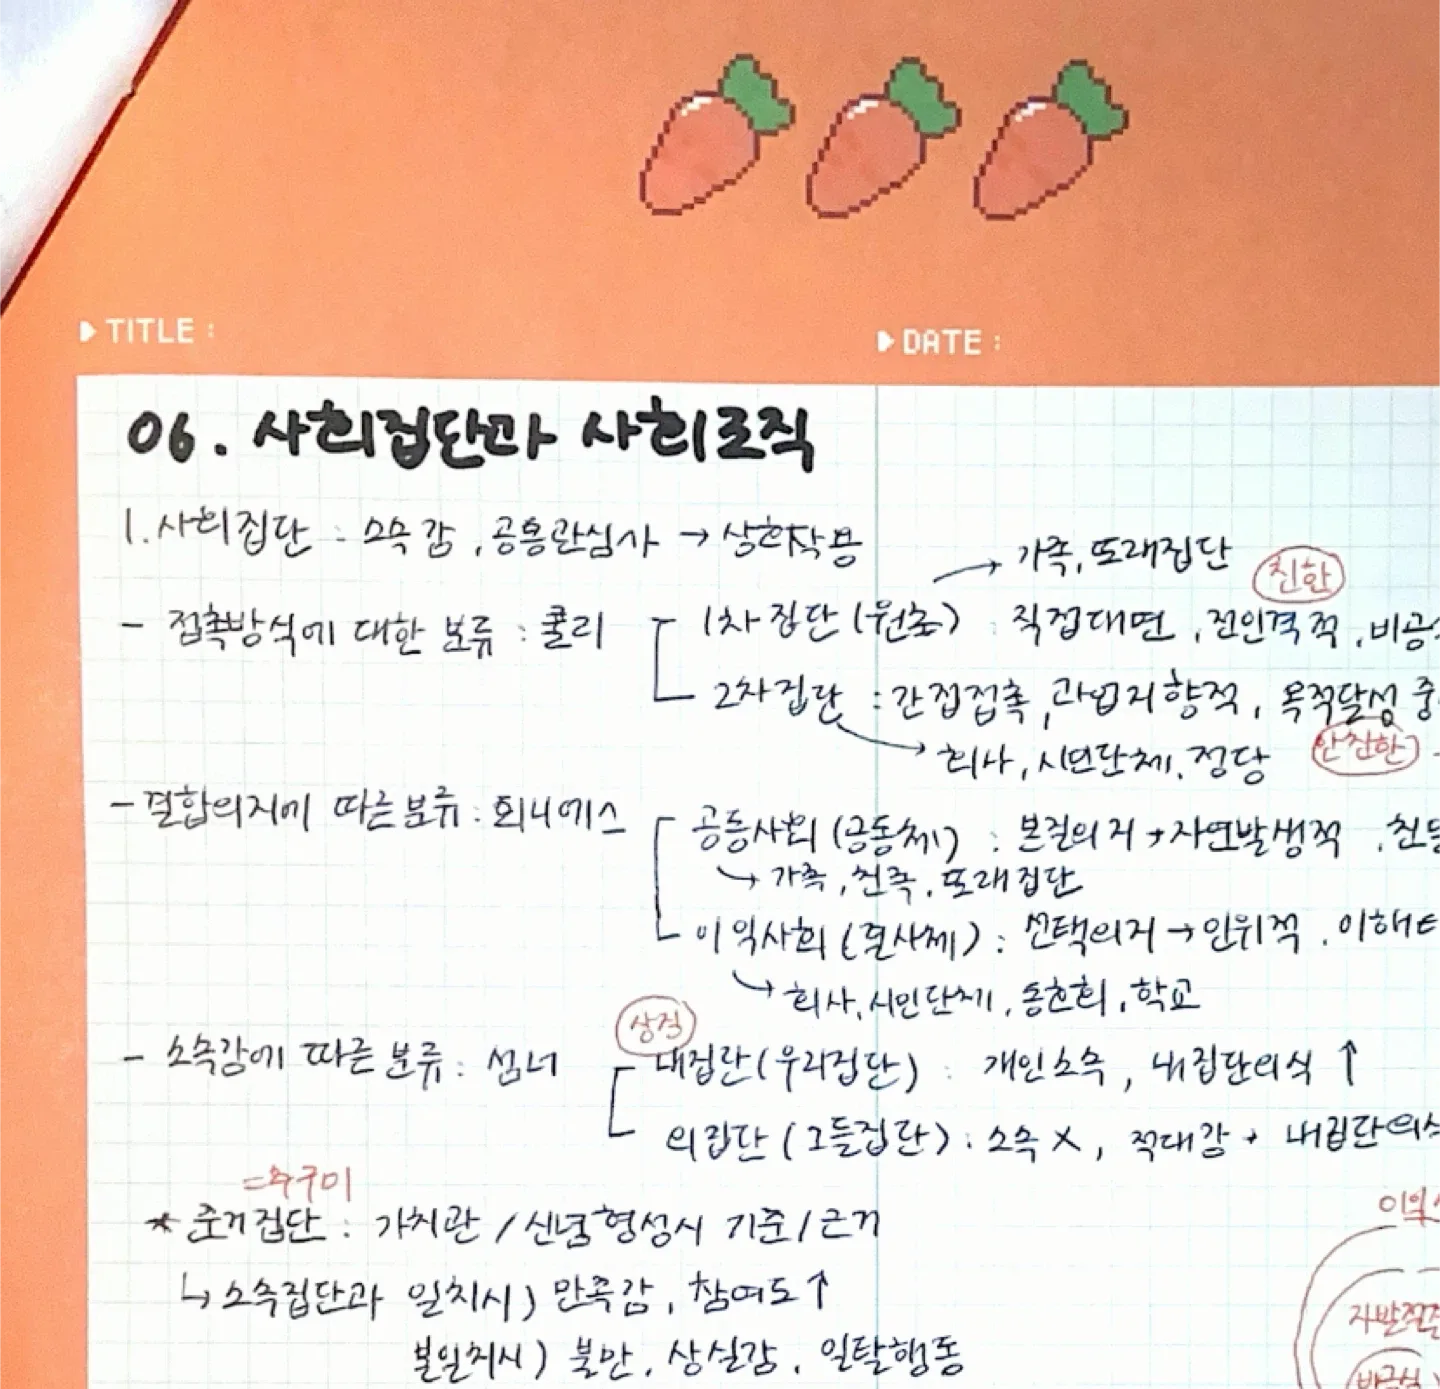 ▶ TITLE :
▶ DATE :
06. 사회집단과 사회조직
1. 사회집단 : 소속감, 공통관심사 → 상호작용
→ 가족, 또래집단
친한
- 접촉방식에 대한 분류 : 쿨리
1차 집단 (원초) : 직접대면, 전인격적, 비공
2차집단 : 간접접촉, 과업지향적, 목적달성 중
→ 회사, 시민단체, 정당
안친한
- 결합의지에 따른 분류 : 퇴니에스
공동사회 (공동체) : 본질의지 → 자연발생적, 친밀
↳ 가족, 친족, 또래집단
이익사회 (결사체) : 선택의지 → 인위적, 이해
↳ 회사, 시민단체, 동호회, 학교
상적
- 소속감에 따른 분류 : 섬너
내집단 (우리집단) : 개인소속, 내집단의식 ↑
외집단 (그들집단) : 소속 X, 적대감, 내집단의식
=추구미
* 준거집단 : 가치관 / 신념형성시 기준 / 근거
↳ 소속집단과 일치시) 만족감, 참여도 ↑
불일치시) 불만, 상실감, 일탈행동
이익
자발적